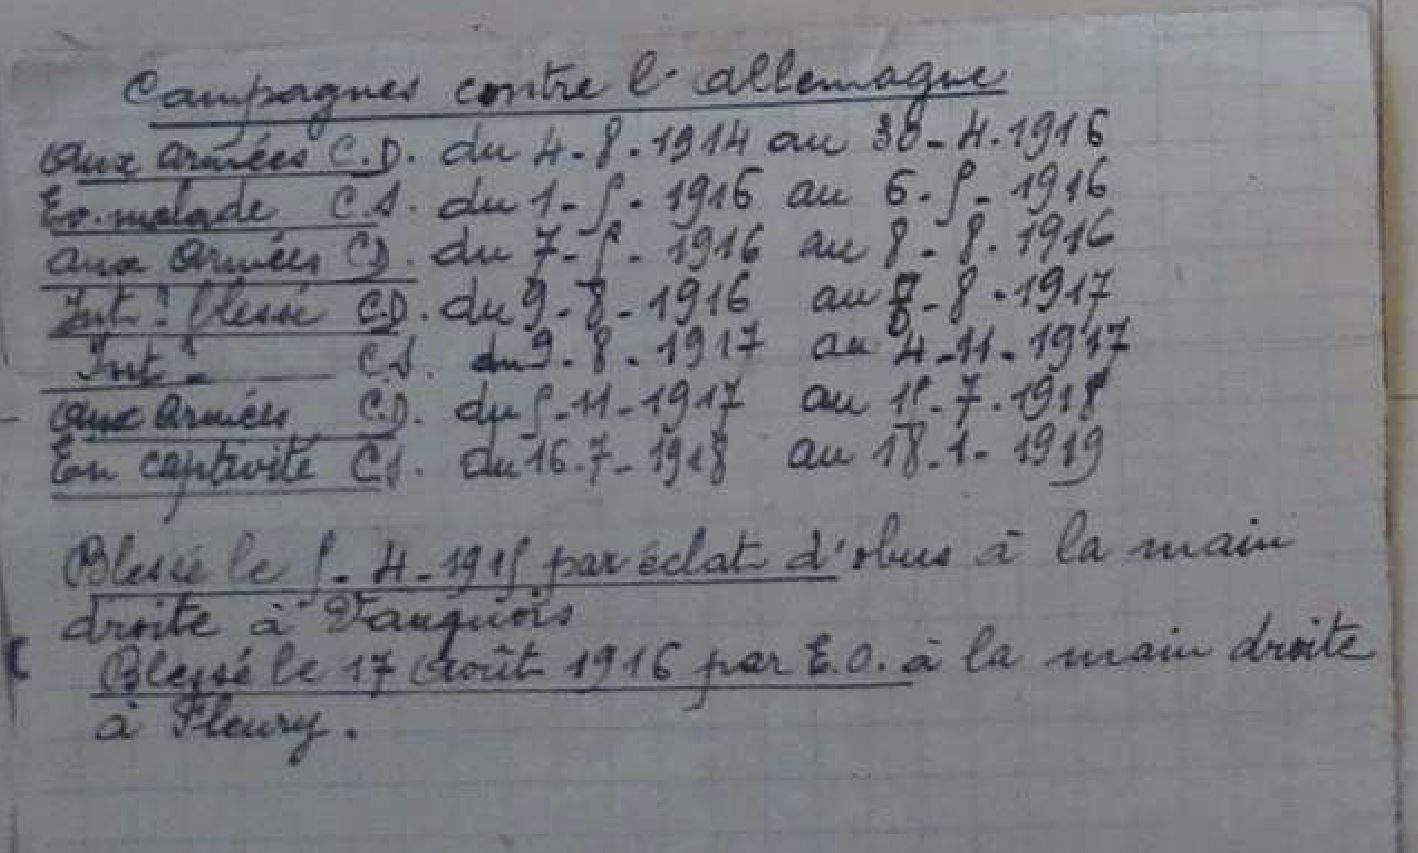 Campagnes contre l'allemagne
Aux armées C.D. du 4-8-1914 au 30-4-1916
Ev. malade C.S. du 1-5-1916 au 6-5-1916
aux armées C.D. du 7-5-1916 au 8-8-1916
Int: blessé C.D. du 9-8-1916 au 8-8-1917
Int: — C.S. du 9-8-1917 au 4-11-1917
aux armées C.D. du 5-11-1917 au 15-7-1918
En captivité C.S. du 16-7-1918 au 18-1-1919
Blessé le 5-4-1915 par éclat d'obus à la main
droite à Vauquois
Blessé le 17 Août 1916 par E.O. à la main droite
à Fleury.